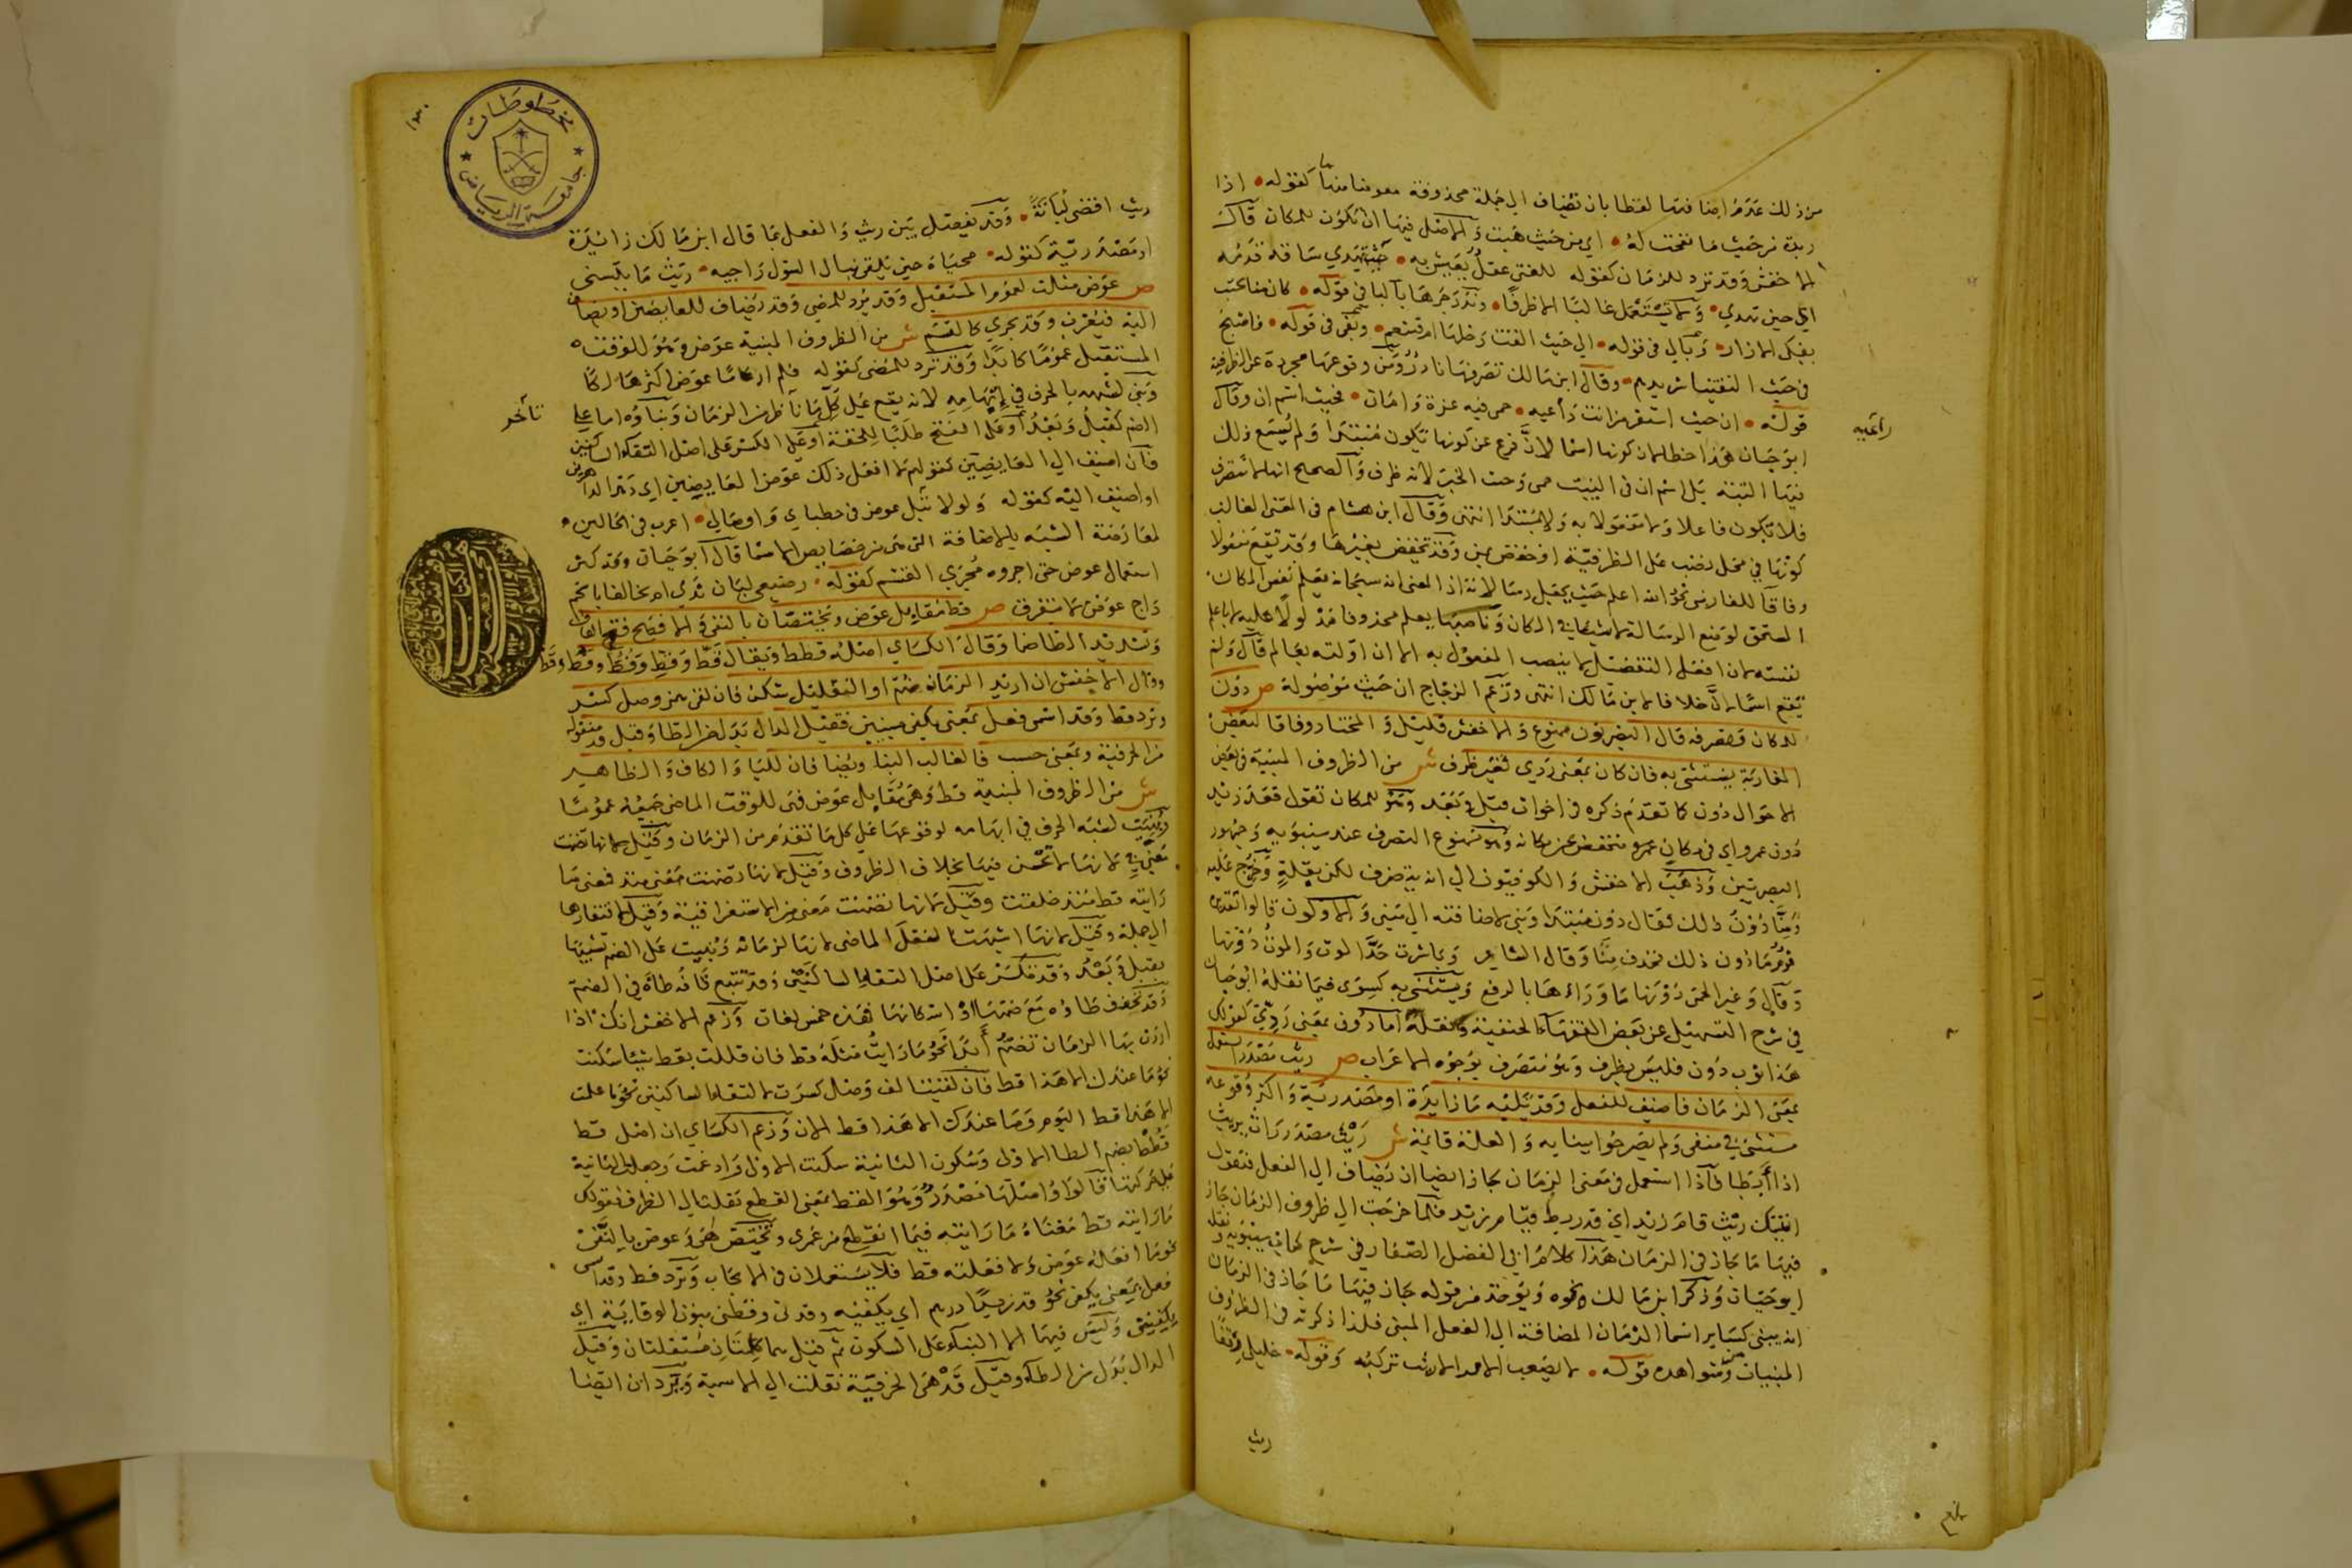 من ذلك عدم اضافتها لفظا بان تضاف الى جملة محذوفة معوضا منها ما كقوله • اذا
ريدة من حيث ما نفحت له • اي من حيث هبت والاصل فيها ان تكون للمكان قال
الاخفش وقد ترد للزمان كقوله للفتى عقل يعيش به • حيث تهدي ساقه قدمه
اي حين تهدي • ولا تستعمل غالبا الا ظرفا • وندر جرها بالباء في قوله • كان منا بحيث
يفكى الازار • وبالى في قوله • الى حيث القت رحلها ام قشعم • وبفى في قوله • فاصبح
في حيث التقينا شريدهم • وقال ابن مالك تصرفها نادر ومن وقوعها مجردة عن الظرفية
قوله • ان حيث استقر من انت راعيه • حمى فيه عزة وامان • فحيث اسم ان وقال
ابو حيان هذا خطا لان كونها اسما لان فرع عن كونها تكون مبتدا ولم يسمع ذلك
فيها البتة بل اسم ان في البيت حمى وحيث الخبر لانه ظرف والصحيح انها لا تتصرف
فلا تكون فاعلا ولا مفعولا به ولا مبتدا انتهى وقال ابن هشام في المغنى الغالب
كونها في محل نصب على الظرفية او خفض بمن وقد تخفض بغيرها وقد تقع مفعولا
وفاقا للفارسي نحو الله اعلم حيث يجعل رسالاته اذ المعنى انه سبحانه يعلم نفس المكان
المستحق لوضع الرسالة لا شيئا في المكان وناصبها يعلم محذوفا مدلولا عليه باعلم لا باعلم
نفسه لان افعل التفضيل لا ينصب المفعول به الا ان اولته بعالم قال ولم
تقع اسما لان خلافا لابن مالك انتهى وزعم الزجاج ان حيث موصولة ص دون
للمكان وتصرفه قال البصريون ممنوع والاخفش قليل والمختار وفاقا لبعض
المغاربة يستثنى به فان كان بمعنى ردي فغير ظرف ش من الظروف المبنية في بعض
الاحوال دون كما تقدم ذكره في اخوات قبل وبعد وهو للمكان تقول قعد زيد
دون عمرو اي في مكان عمرو منخفض عن مكانه وهو ممنوع التصرف عند سيبويه وجمهور
البصريين وذهب الاخفش والكوفيون الى انه يتصرف لكن بقلة وخرج عليه
ومنا دون ذلك فقال دون مبتدا وبني لاضافته الى مبني والاولون قالوا تقديره
قوم ما دون ذلك فحذف منا وقال الشاعر وباشرت حد الموت والموت دونها
وقال وغير الحمى دونها ما وراءها بالرفع ويستثنى به كسوى فيما نقله ابو حيان
في شرح التسهيل عن بعض الفقهاء الحنفية ونقله اما دون بمعنى ردي كقولك
هذا ثوب دون فليس بظرف وهو متصرف بوجوه الاعراب ص ريث مصدر استعمل
بمعنى الزمان فاضيف للفعل وقد تليه ما زايدة او مصدرية واكثر وقوعه
مستثنى في منفي ولم يصرحوا ببنايه والعلة قائمة ش ريث مصدر راث يريث
اذا أبطا فاذا استعمل في معنى الزمان جاز ايضا ان يضاف الى الفعل فتقول
اتيتك ريث قام زيد اي قدر بطء قيام زيد فلما خرجت الى ظروف الزمان جاز
فيها ما جاز في الزمان هذا كلام ابي الفضل الصفار في شرح كتاب سيبويه نقله
ابو حيان وذكر ابن مالك نحوه ويؤخذ من قوله جاز فيها ما جاز في الزمان
انه يبنى كساير اسما الزمان المضافة الى الفعل المبني فلذا ذكرته في الظروف
المبنيات ومن شواهده قوله • لا يصعب الامر الا ريث تركبه وقوله • خليلي رفقا
ريث
راعيه
ريث اقضي لبانة • وقد يفصل بين ريث والفعل بما قال ابن مالك زائدة
او مصدرية كقوله • محياه حين يلقى ينال السول راجيه • ريث ما يتسنى
ص عوض مثلث لعموم المستقبل وقد يرد للمضي وقد يضاف للعايضين او يضاف
اليه فيعرب وقد يجري كالقسم ش من الظروف المبنية عوض وهو للوقت
المستقبل عموما كابدا وقد ترد للمضي كقوله فلم ار عاما عوض اكثر هالكا
وبني لشبهه بالحرف في إبهامه لانه يقع على كل ما تأخر من الزمان وبناؤه اما على
الضم كقبل وبعد او على الفتح طلبا للخفة او على الكسر على اصل التقاء الساكنين
فان اضيف الى العايضين كقولهم لا افعل ذلك عوض العايضين اي دهر الداهرين
او اضيف اليه كقوله ولولا نبل عوض في حظباي واوصالي • اعرب في الحالين
لمعارضة الشبه بالاضافة التي هي من خصايص الاسما قال ابو حيان وقد كثر
استعمال عوض حتى اجروه مجرى القسم كقوله • رضيعي لبان ثدي ام تحالفا باسحم
داج عوض لا نتفرق ص قط مقابل عوض ويختصان بالنفي والافصح فتح القاف
وتشديد الطا ضما وقال الكسائي اصله قطط ويقال قط وقط وقط وقط وقط
وقال الاخفش ان اريد الزمان ضم او التقليل سكن فان لقي همز وصل كسر
وترد قط وقد اسمي فعل بمعنى يكفي مبنيين فقيل الدال بدل من الطا وقيل قد منقولة
من الحرفية وبمعنى حسب فالغالب البنا ويضافان لليا والكاف والظاهر
ش من الظروف المبنية قط وهي مقابل عوض فهي للوقت الماضي جميعه عموما
وبنيت لشبه الحرف في ابهامه لوقوعها على كل ما تقدم من الزمان وقيل لانها تضمنت
معنى في لانها لا تحسن فيها بخلاف الظروف وقيل لانها تضمنت معنى منذ فمعنى ما
رايته قط منذ خلقت وقيل لانها تضمنت معنى من الاستغراقية وقيل لافتقارها
الى جملة وقيل لانها اشبهت الفعل الماضي لانها لزمانه وبنيت على الضم تشبيها
بقبل وبعد وقد تكسر على اصل التقاء الساكنين وقد تتبع قافه طاءه في الضم
وقد تخفف طاؤه مع ضمها او اسكانها فهذه خمس لغات وزعم الاخفش انك اذا
اردت بها الزمان تضم أبدا نحو ما رايت مثله قط فان قللت بقط شيئا سكنت
نحو ما عندك الا هذا قط فان لقيتها الف وصل كسرت لالتقاء الساكنين نحو ما علمت
الا هذا قط اليوم وما عندك الا هذا قط الان وزعم الكسائي ان اصل قط
قطط بضم الطا الاولى وسكون الثانية سكنت الاولى وادغمت وجعلت الثانية
على حركتها قالوا واصلها مصدر وهو القط بمعنى القطع نقلت الى الظرف فقولك
ما رايته قط معناه ما رايته فيما انقطع من عمري وتختص هي وعوض بالنفي
نحو ما افعله عوض ولا فعلته قط فلا يستعملان في الايجاب وترد قط وقد اسمي
فعل بمعنى يكفي نحو قد زيدا درهم اي يكفيه وقدني وقطني بنون الوقاية اي
يكفيني وليس فيها الا البناء على السكون ثم قيل هما كلمتان مستقلتان وقيل
الدال بدل من الطاء وقيل قد هي الحرفية نقلت الى الاسمية وترد ان ايضا
تأخر
مخطوطات
جامعة الرياض